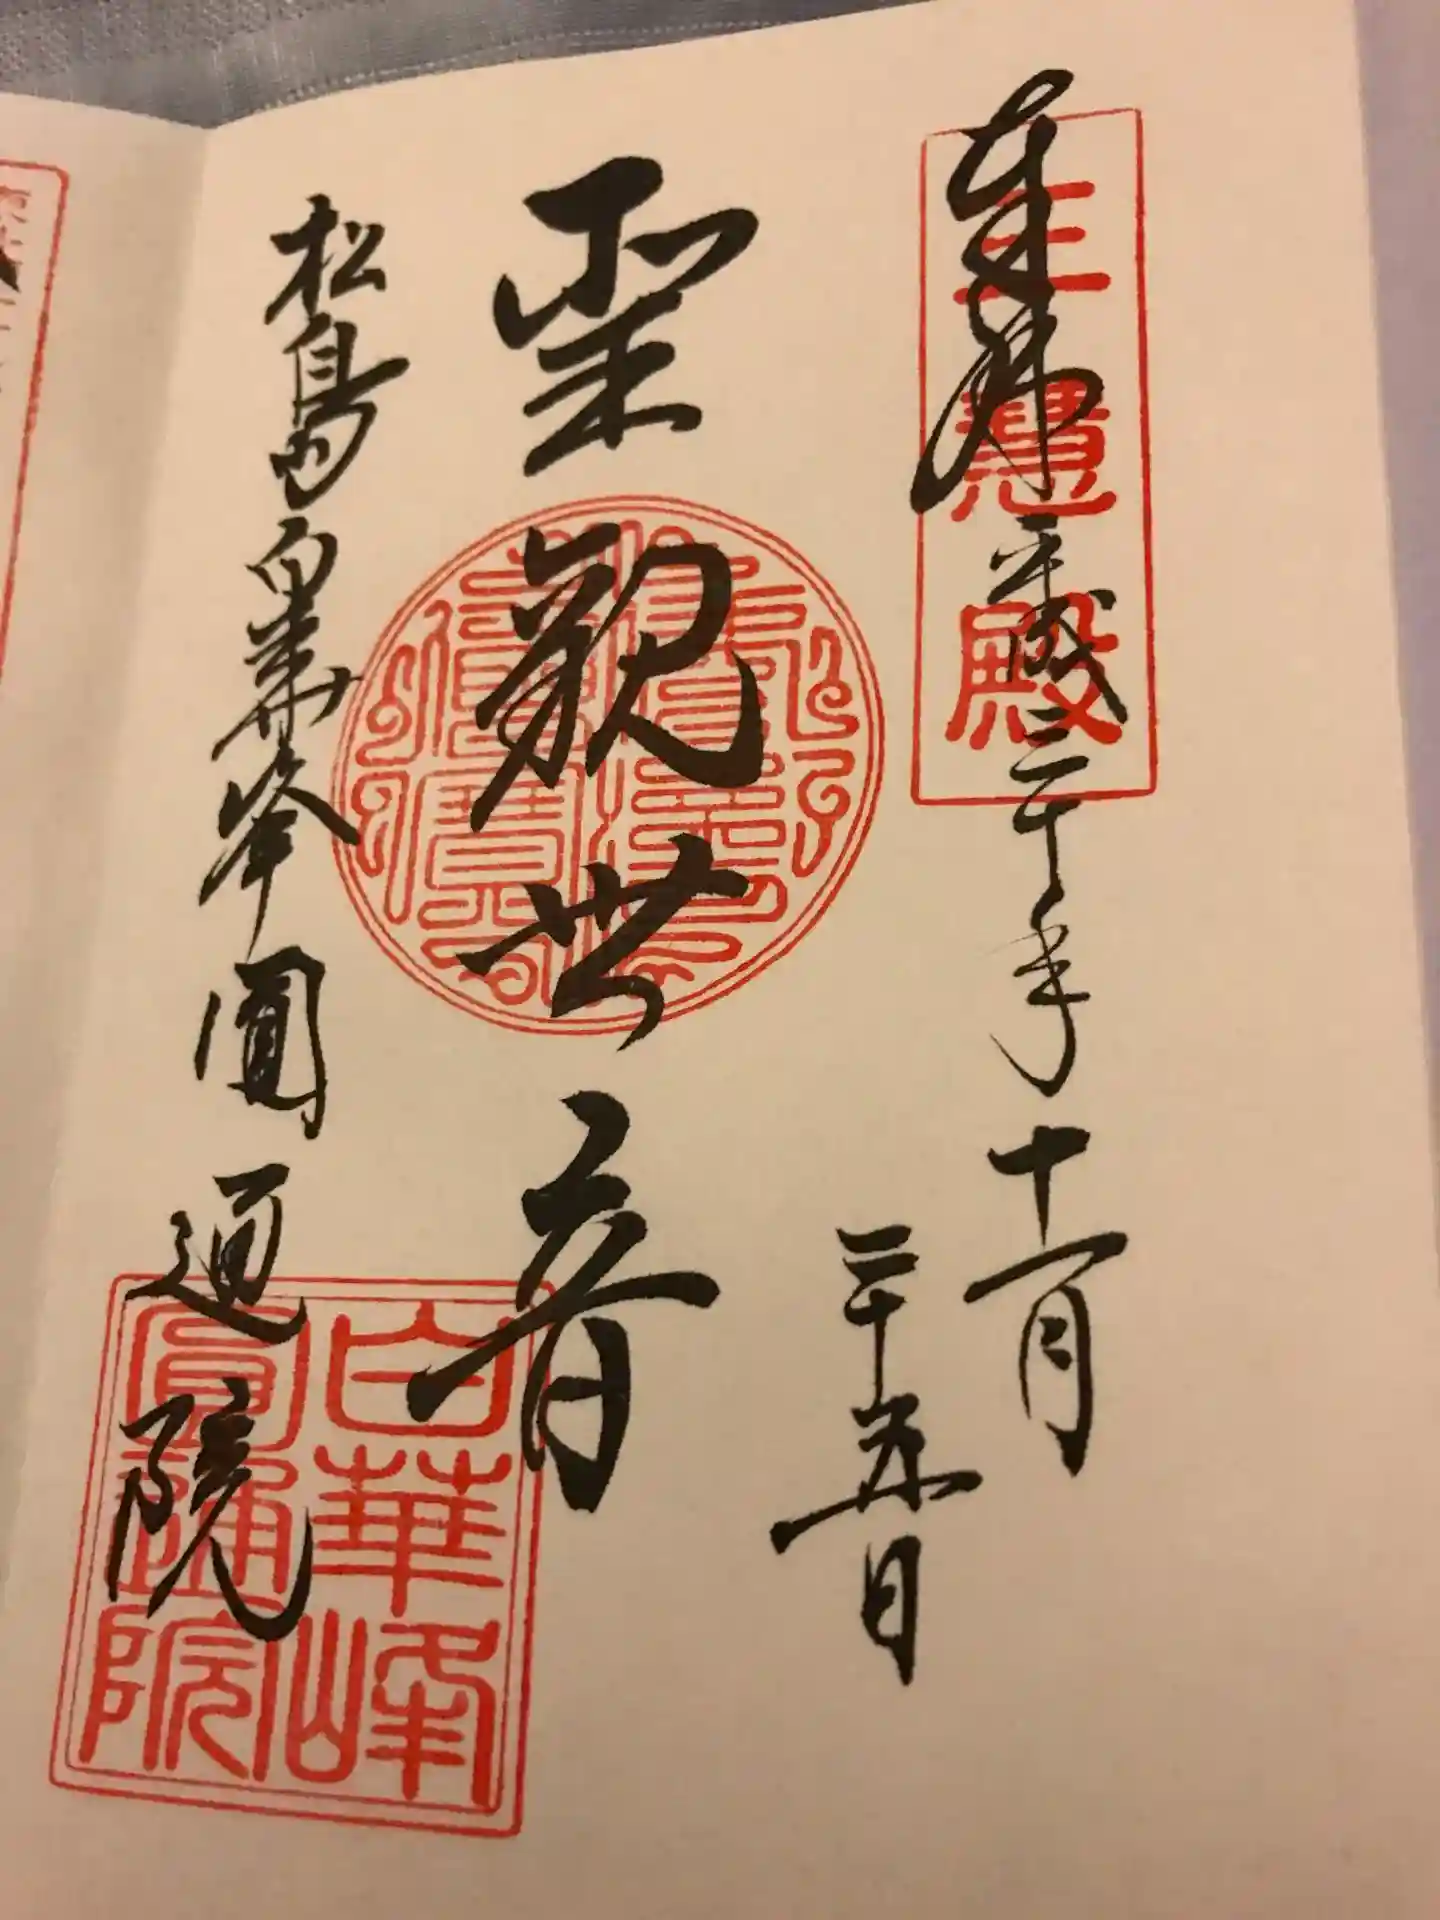 三慧殿
奉拝
平成三十年十一月
二十五日
聖観世音
松島白華峯圓通院
白華峰
圓通院